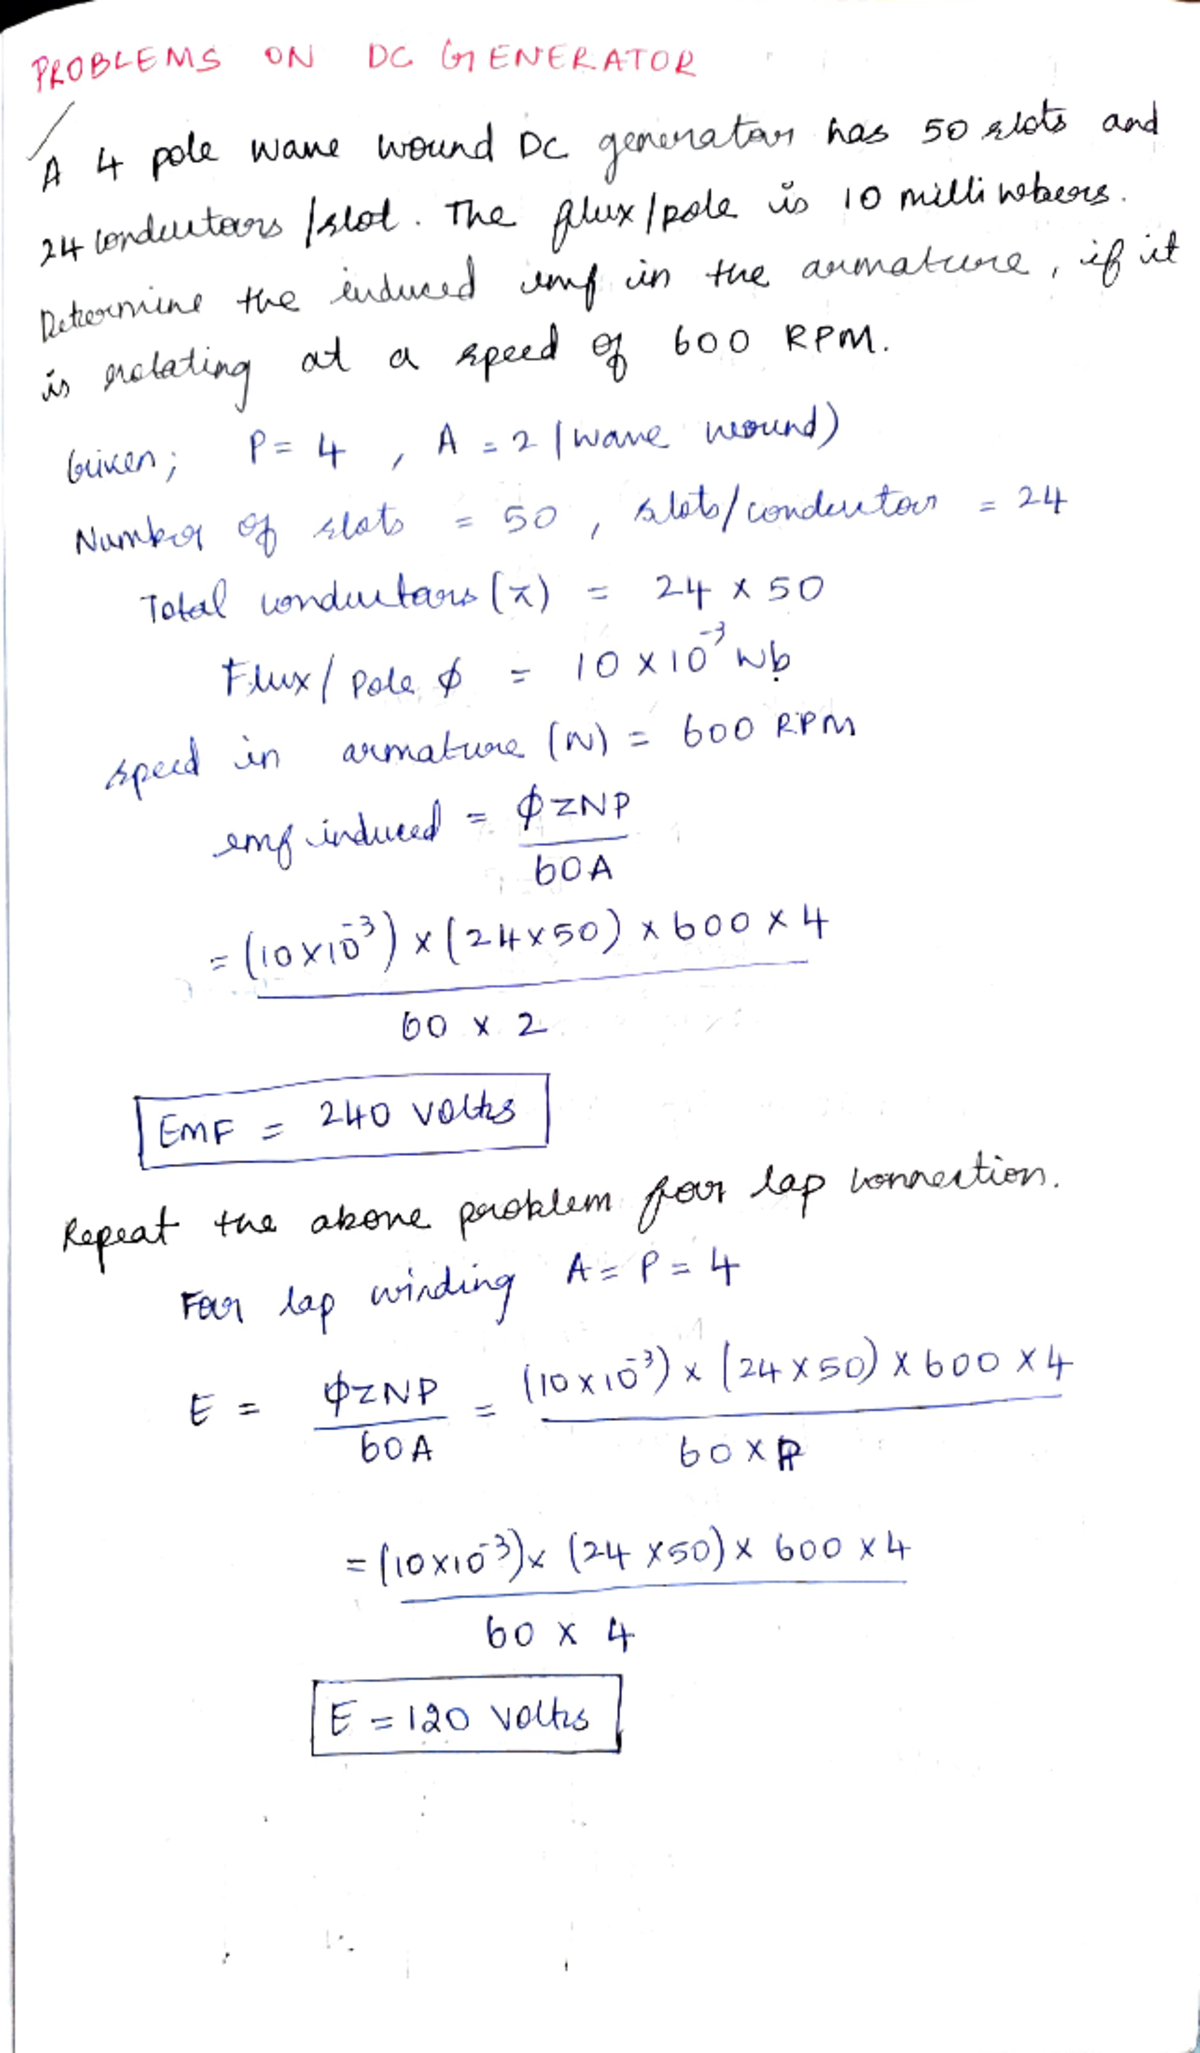 PROBLEMS ON DC GENERATOR
A 4 pole wave wound DC generator has 50 slots and
24 conductors /slot. The flux/pole is 10 milli webers.
Determine the induced emf in the armature, if it
is rotating at a speed of 600 RPM.
Given; P = 4 , A = 2 (wave wound)
Number of slots = 50 , slots/conductor = 24
Total conductors (z) = 24 x 50
Flux/ Pole ϕ = 10 x 10⁻³ Wb
speed in armature (N) = 600 RPM
emf induced = ϕZNP
60A
= (10x10⁻³) x (24x50) x 600 x 4
60 x 2
EMF = 240 volts
Repeat the above problem for lap connection.
For lap winding A = P = 4
E = ϕZNP = (10x10⁻³) x (24 x 50) x 600 x 4
60A 60 x P
= (10x10⁻³) x (24 x 50) x 600 x 4
60 x 4
E = 120 volts